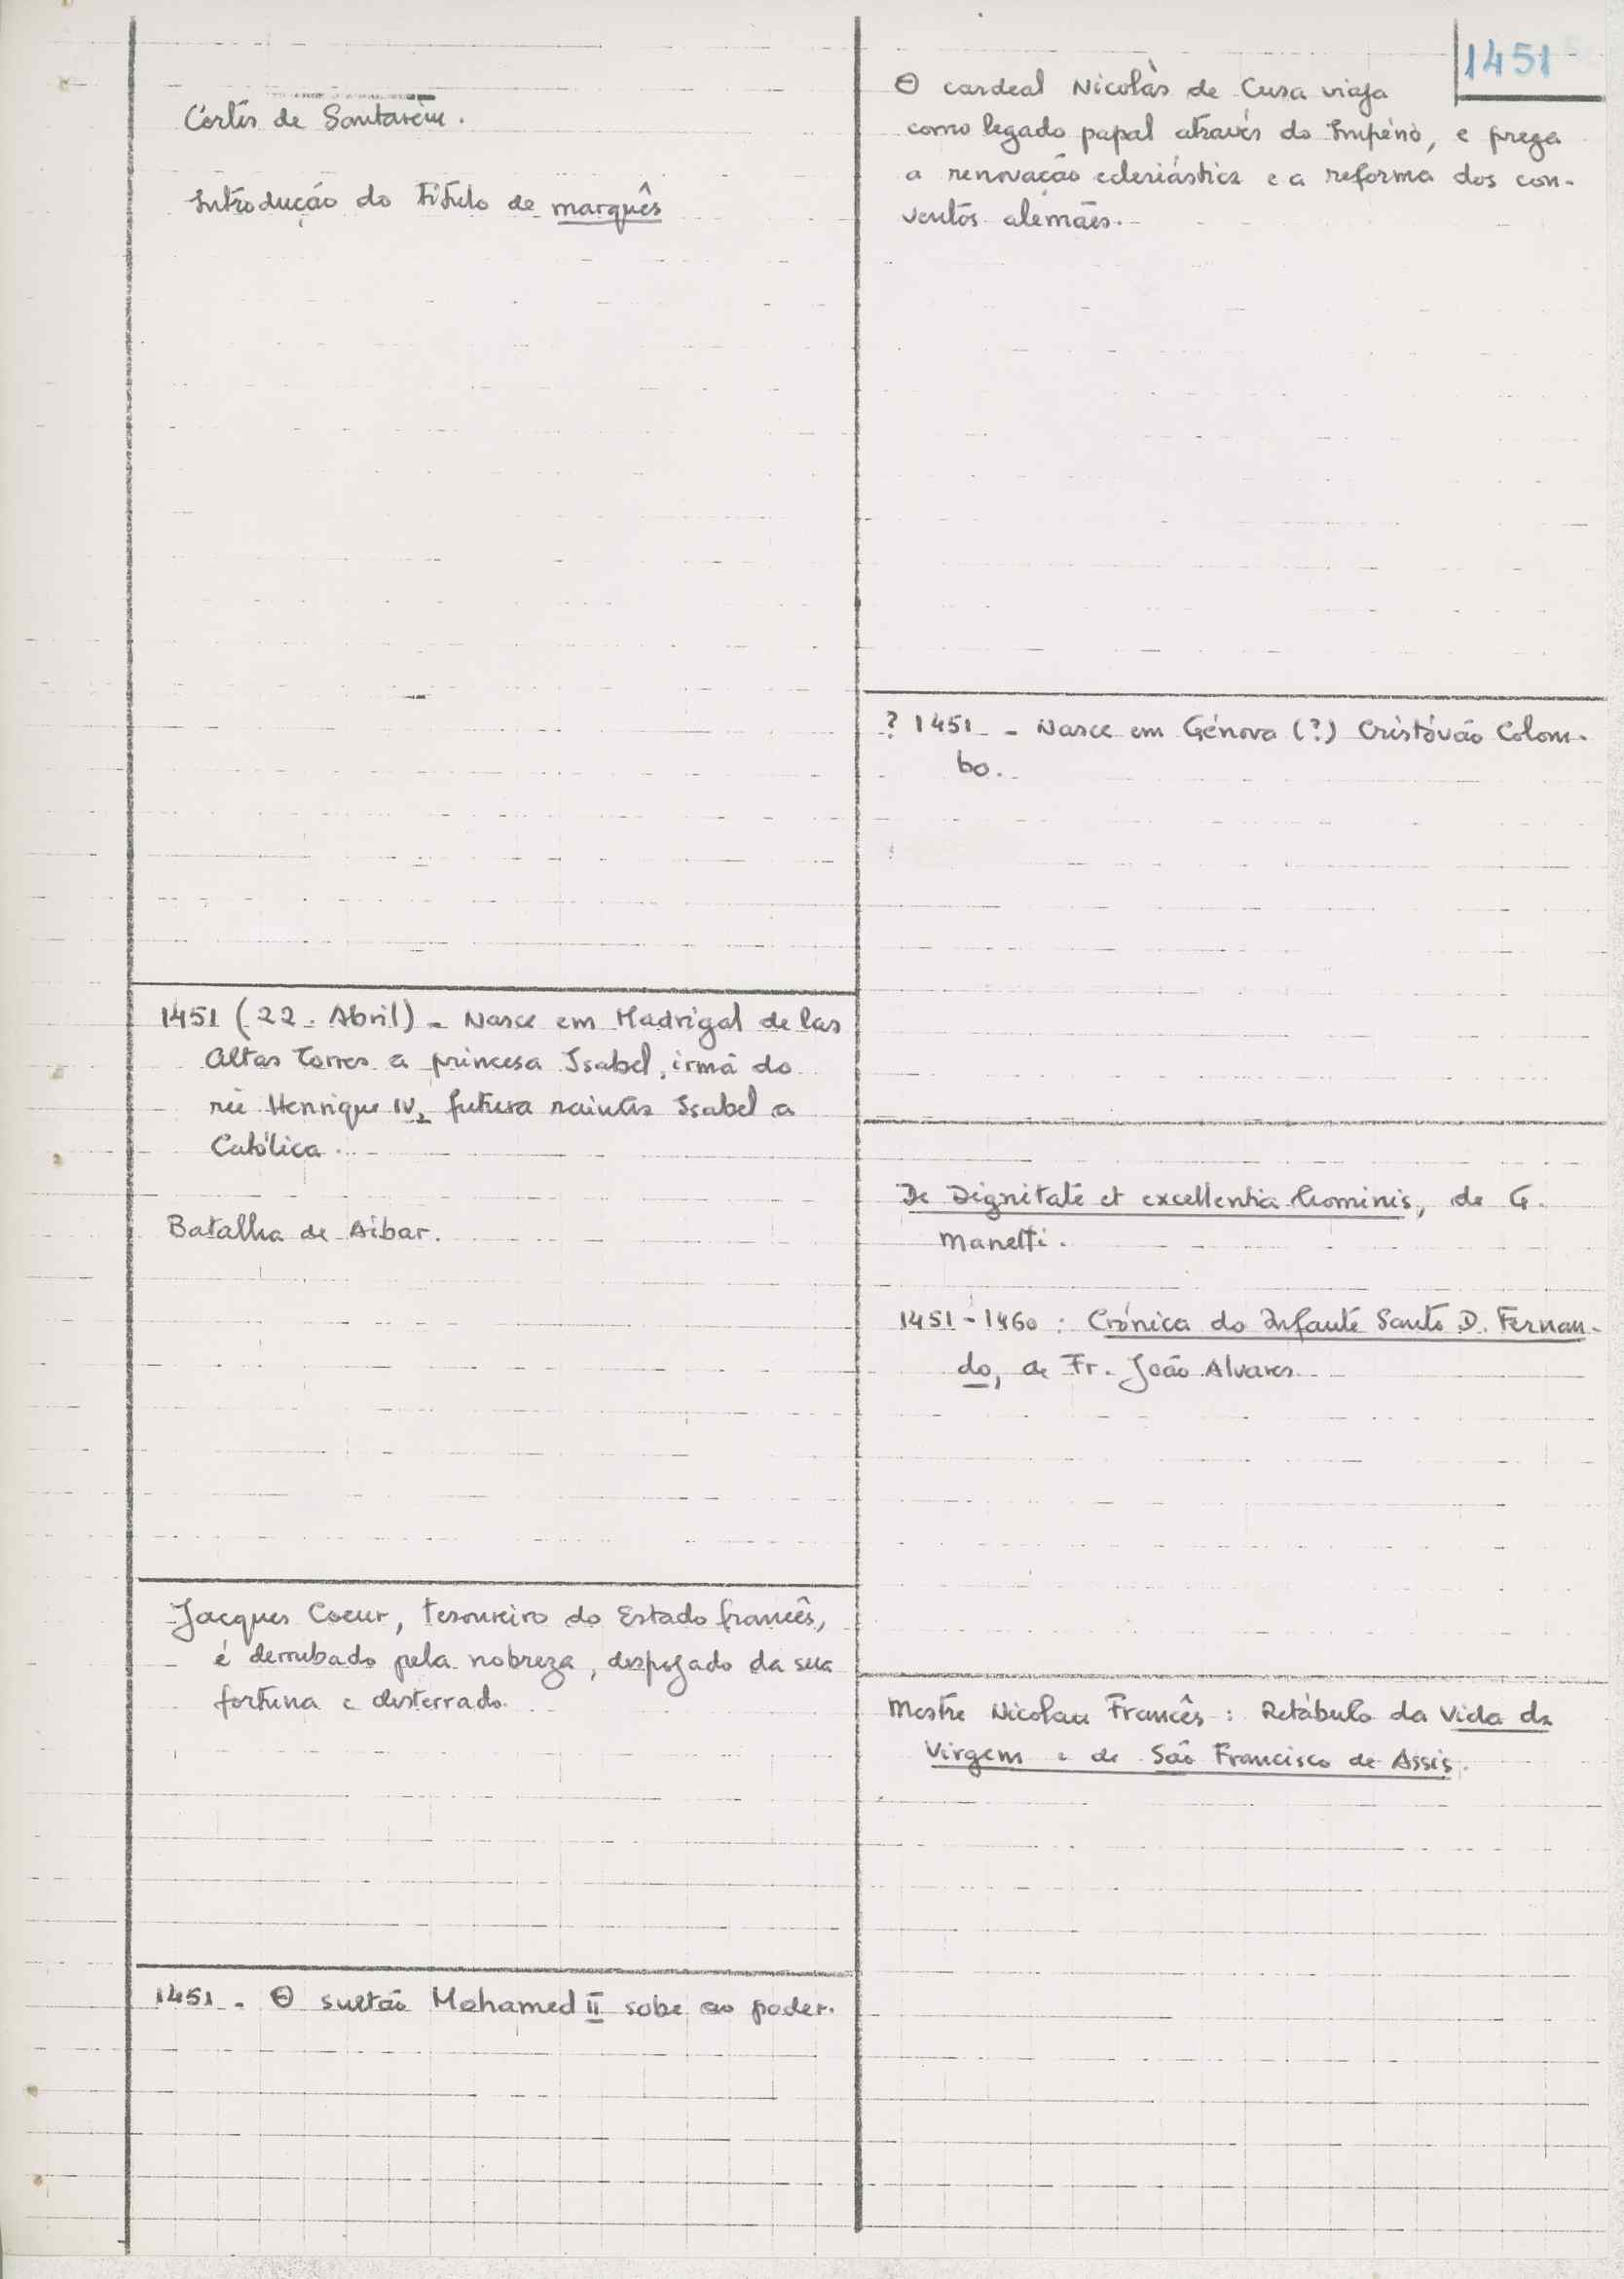 1451
Cortes de Santarém.
Introdução do título de marquês
1451 (22. Abril) - Nasce em Madrigal de las
Altas Torres a princesa Isabel, irmã do
rei Henrique IV, futura rainha Isabel a
Católica.
Batalha de Aibar.
Jacques Coeur, tesoureiro do Estado francês,
é derrubado pela nobreza, despojado da sua
fortuna e desterrado.
1451 - O sultão Mohamed II sobe ao poder.
O cardeal Nicolàs de Cusa viaja
como legado papal através do Império, e prega
a renovação eclesiástica e a reforma dos con-
ventos alemães.
? 1451 - Nasce em Génova (?) Cristóvão Colom-
bo.
De Dignitate et excellentia hominis, de G.
Manetti.
1451-1460 : Crónica do Infante Santo D. Fernan-
do, de Fr. João Alvares
Mestre Nicolau Francês : Retábulo da Vida da
Virgem e de São Francisco de Assis.